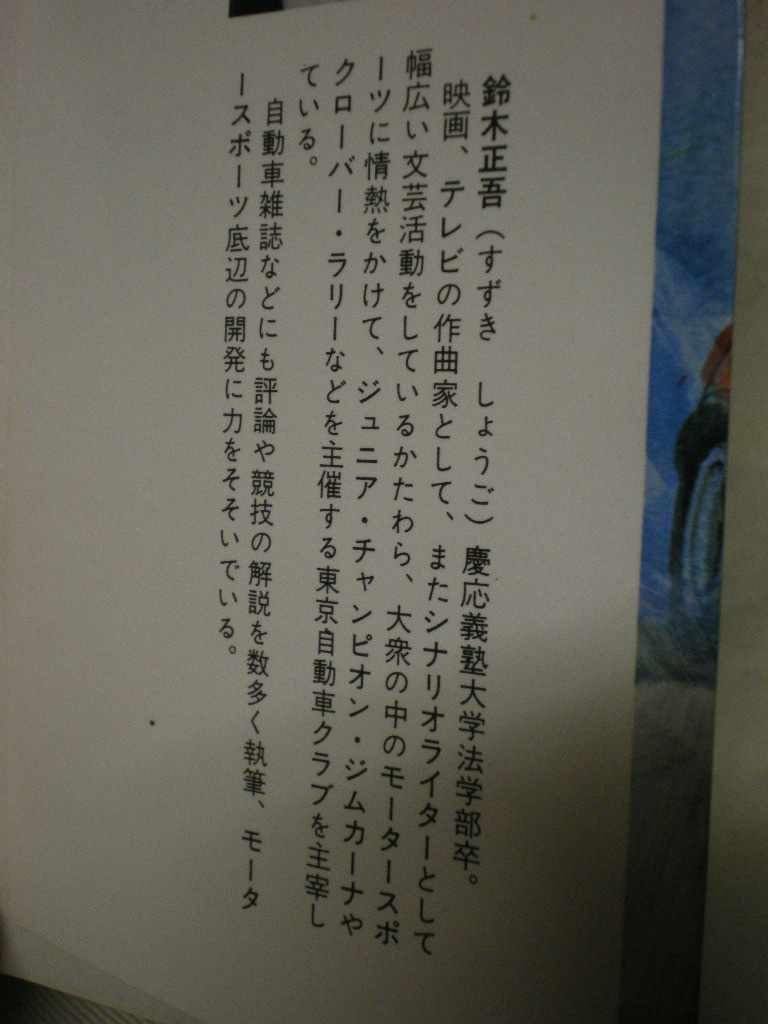 鈴木正吾（すずき　しょうご）慶応義塾大学法学部卒。
映画、テレビの作曲家として、またシナリオライターとして
幅広い文芸活動をしているかたわら、大衆の中のモータースポ
ーツに情熱をかけて、ジュニア・チャンピオン・ジムカーナや
クローバー・ラリーなどを主催する東京自動車クラブを主宰し
ている。
自動車雑誌などにも評論や競技の解説を数多く執筆、モータ
ースポーツ底辺の開発に力をそそいでいる。